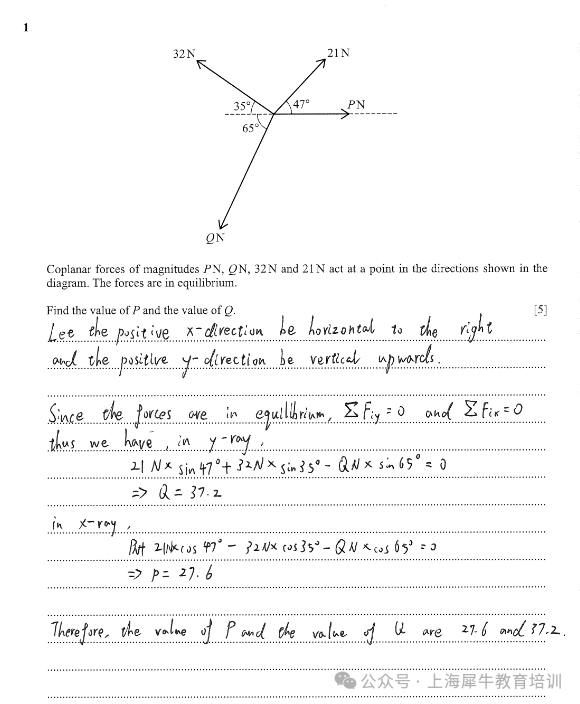 1
32 N
21 N
35°
47°
P N
65°
Q N
Coplanar forces of magnitudes P N, Q N, 32 N and 21 N act at a point in the directions shown in the
diagram. The forces are in equilibrium.
Find the value of P and the value of Q. [5]
Let the positive x-direction be horizontal to the right
and the positive y-direction be vertical upwards.
Since the forces are in equilibrium, ΣFiy = 0 and ΣFix = 0
thus we have, in y-ray,
21 N × sin 47° + 32N × sin 35° - QN × sin 65° = 0
=> Q = 37.2
in x-ray,
PN+ 21N×cos 47° - 32N× cos 35° - QN × cos 65° = 0
=> P = 27.6
Therefore, the value of P and the value of Q are 27.6 and 37.2.
公众号 · 上海犀牛教育培训